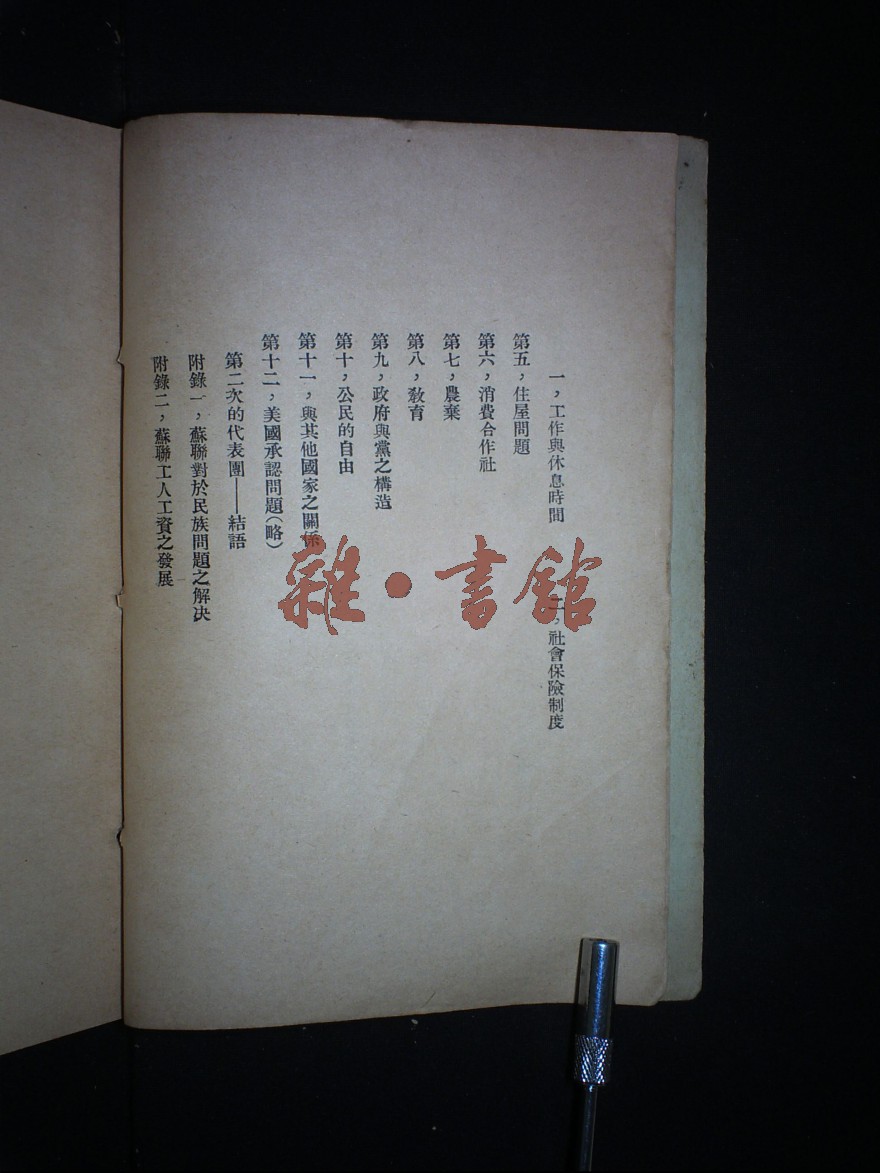 一，工作與休息時間　二，社會保險制度
第五，住屋問題
第六，消費合作社
第七，農棄
第八，教育
第九，政府與黨之構造
第十，公民的自由
第十一，與其他國家之關係
第十二，美國承認問題(略)
第二次的代表團——結語
附錄一，蘇聯對於民族問題之解決
附錄二，蘇聯工人工資之發展
雜·書館